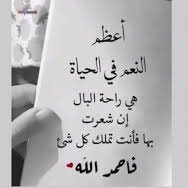 أعظم
النعم في الحياة
هي راحة البال
إن شعرت
بها فأنت تملك كل شئ
فاحمد الله